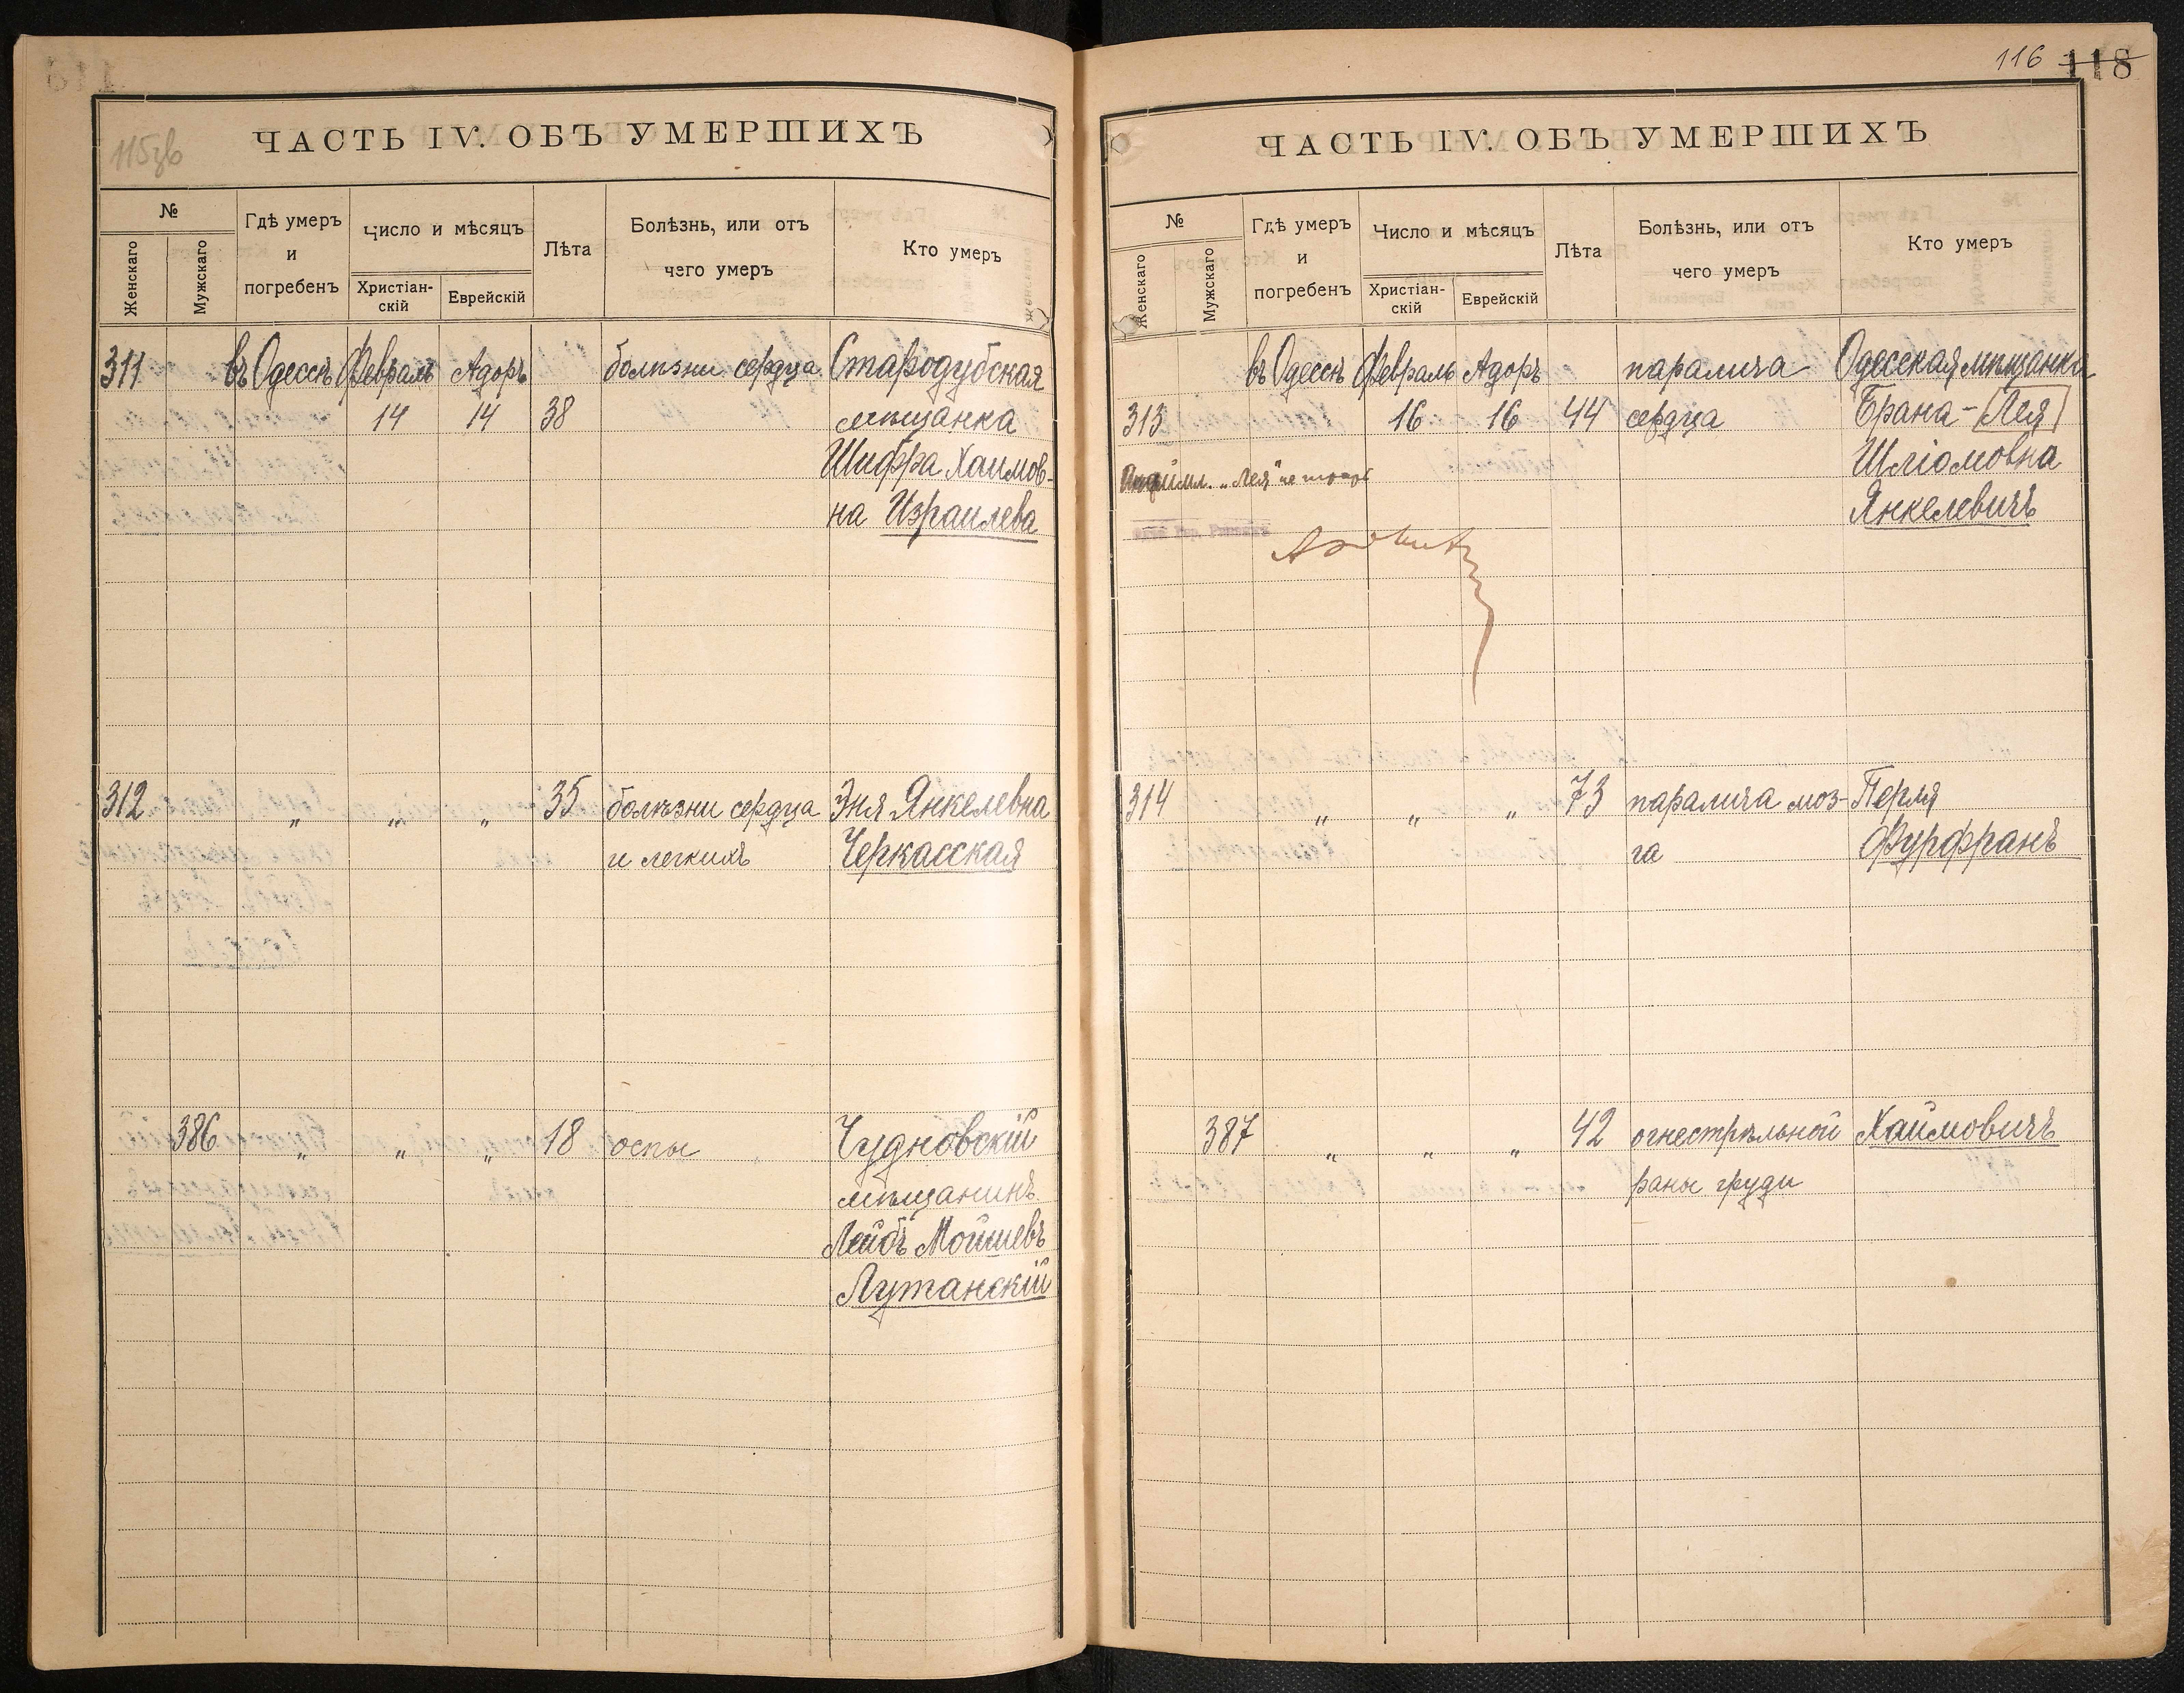 115зв
ЧАСТЬ IV. ОБЪ УМЕРШИХЪ
№
Женскаго
Мужскаго
Гдѣ умеръ
и
погребенъ
Число и мѣсяцъ
Христіан-
скій
Еврейскій
Лѣта
Болѣзнь, или отъ
чего умеръ
Кто умеръ
311 въ Одессѣ Февраль Адоръ болѣзни сердца Стародубская
14 14 38 мѣщанка
Шифра Хаимов-
на Израилева
312 „ „ „ 35 болѣзни сердца Эня Янкелевна
и легкихъ Черкасская
386 „ „ „ 18 оспы Чудновскій
мѣщанинъ
Лейбъ Мойшевъ
Лутанскій
116 118
ЧАСТЬ IV. ОБЪ УМЕРШИХЪ
№
Женскаго
Мужскаго
Гдѣ умеръ
и
погребенъ
Число и мѣсяцъ
Христіан-
скій
Еврейскій
Лѣта
Болѣзнь, или отъ
чего умеръ
Кто умеръ
въ Одессѣ Февраль Адоръ паралича Одесская мѣщанка
313 16 16 44 сердца Брана - Лея
„Лея" не Шліомовна
Янкелевичъ
314 „ „ „ 73 паралича моз- Перля
га Фурфранъ
387 „ „ „ 42 огнестрѣльной Хаймовичъ
раны груди